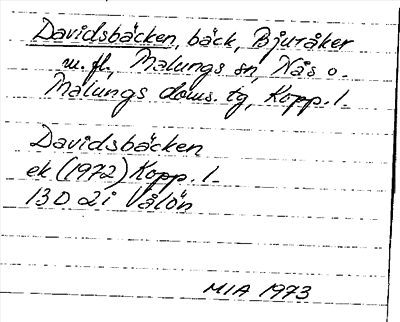 Davidsbäcken, bäck, Bjuråker
m. fl., Malungs sn, Nås o.
Malungs doms. tg, Kopp. l.
Davidsbäcken
ek (1972) Kopp. l.
13D 2i Vålön
MIA 1973